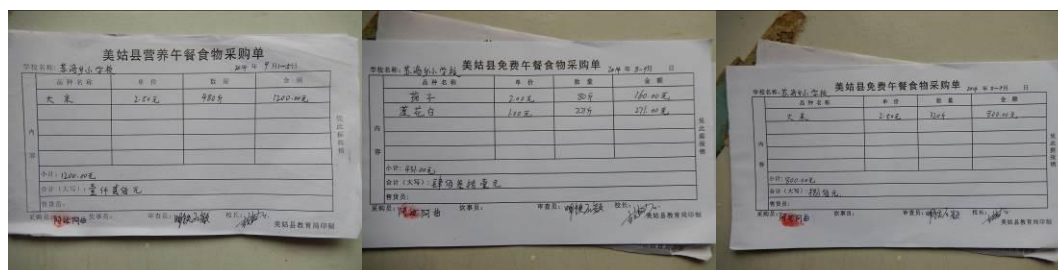 美姑县营养午餐食物采购单
学校名称：苏洛乡小学校 2014 年 9月1—5日
品种名称 单价 数量 金额
大米 2.50元 480斤 1200.00元
内容
小计：1200.00元
合计（大写）：壹仟贰佰元
售货员：
采购员： 炊事员： 审查员： 校长：
美姑县教育局印制
凭此据报销
美姑县免费午餐食物采购单
学校名称：苏洛乡小学校 2014 年 日
品种名称 单价 数量 金额
茄子 2.00元 80斤 160.00元
莲花白 1.00元 271.00元
内容
小计：431.00元
合计（大写）：肆佰叁拾壹元
售货员：
采购员： 炊事员： 审查员： 校长：
美姑县教育局印制
凭此据报销
美姑县免费午餐食物采购单
学校名称：苏洛乡小学校 2014 年 日
品种名称 单价 数量 金额
大米 2.50元 320斤 800.00元
内容
小计：800.00元
合计（大写）：捌佰元
售货员：
采购员： 炊事员： 审查员： 校长：
美姑县教育局印制
凭此据报销